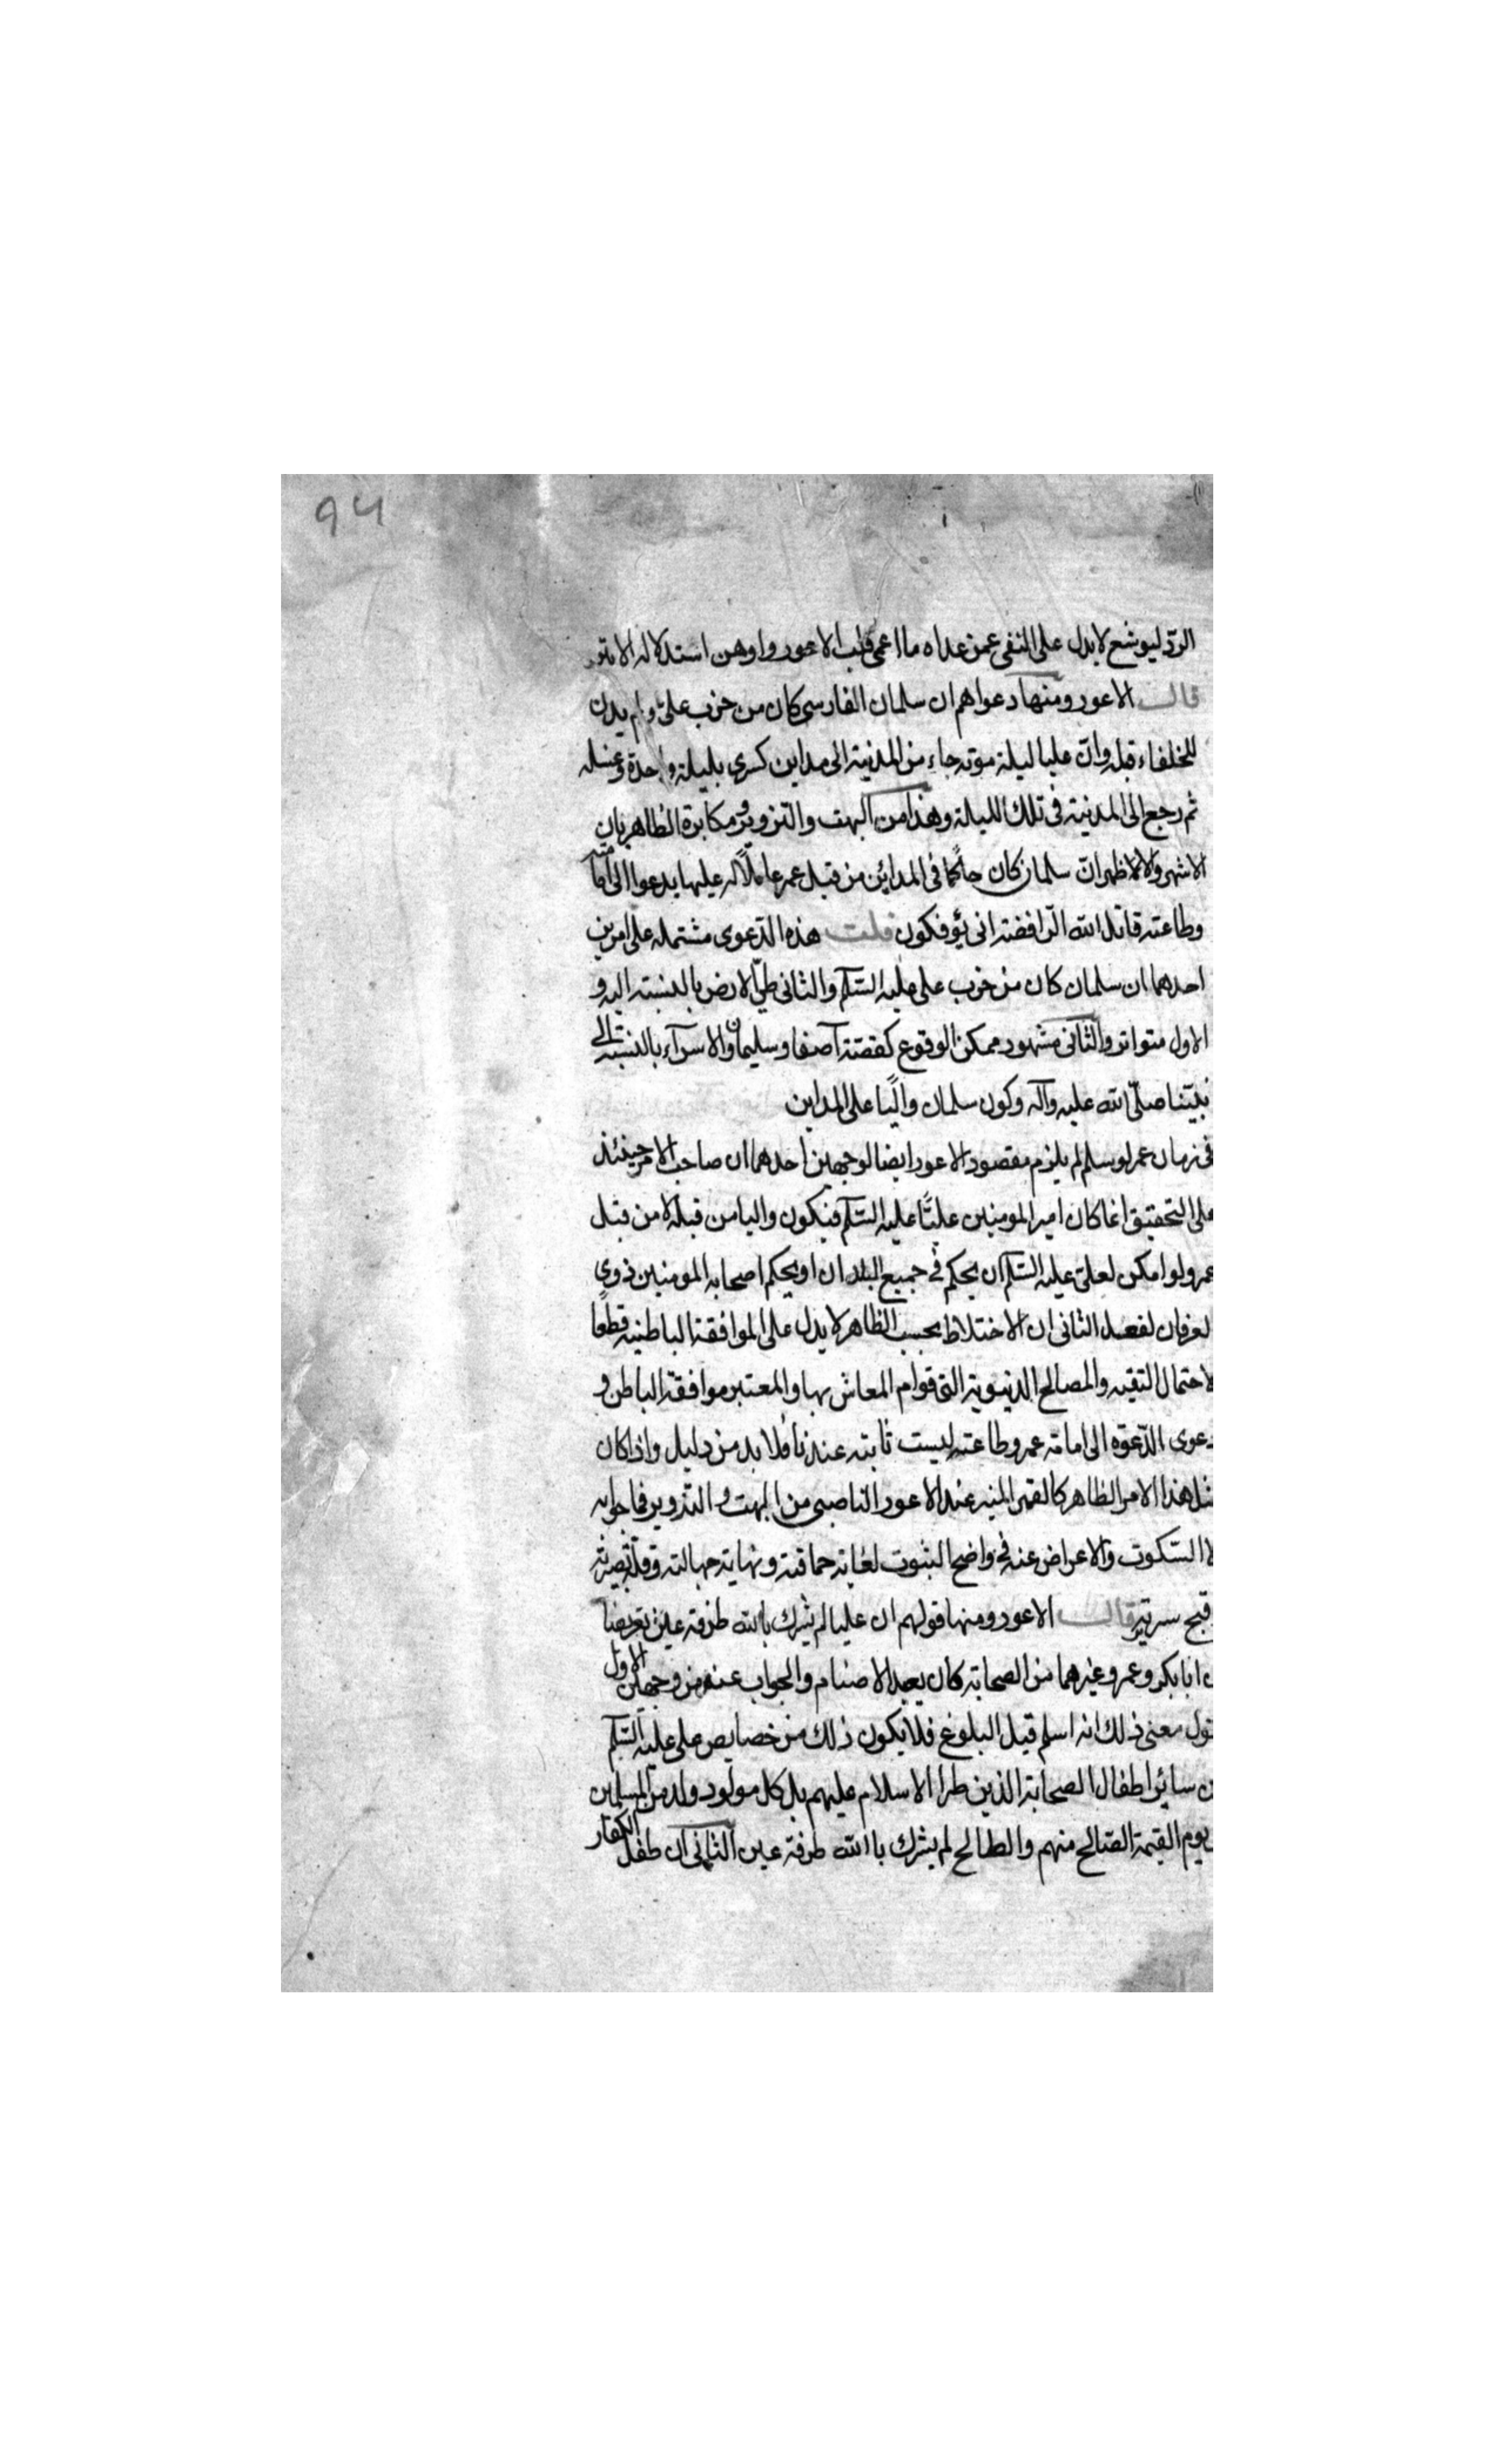 94
الردّ ليوشع لا يدل على النفى عمن عداه ما اعمى قلب الاعور واوهن استدلاله الابتر
قالـــ الاعور ومنها دعواهم ان سلمان الفارسى كان من حزب علىّ ولم يدن
للخلفاء قبله وانّ عليا ليلة موته جاء من المدنية الى مداين كسرى بليلة واحدة وغسله
ثم رجع الى المدنية فى تلك الليلة وهذا من البهت والتزوير ومكابرة الظاهر بان
الاشهر والاظهر انّ سلمان كان حاكمًا فى المدائن من قبل عمر عاملًا له عليها يدعوا الى امامته
وطاعته قاتل الله الرّافضة انى يؤفكون قلت هذه الدّعوى مشتمله على امرين
احدهما ان سلمان كان من حزب على عليه السّلم والثانى طىّ الارض بالنسبة اليه و
الاول متواتر والثانى مشهور ممكن الوقوع كقصّة آصف وسليمان والاسرآء بالنسبة الى
نبيّنا صلّى الله عليه وآله وكون سلمان واليًا على المداين
فى زمان عمر لو سلم لم يلزم مقصود الاعور ايضا لوجهين احدهما ان صاحب الامر حينئذ
على التحقيق انما كان امير المومنين عليًّا عليه السّلم فيكون واليا من قبله لا من قبل
عمر ولو امكن لعلىّ عليه السّلم ان يحكم فى جميع البلدان او يحكم اصحابه المومنين ذوى
لعرفان لفعل الثانى ان الاختلاط بحسب الظاهر لا يدل على الموافقة الباطنيه قطعًا
لاحتمال التقيه والمصالح الدنيوية التى قوام المعاش بها والمعتبر موافقة الباطن و
دعوى الدّعوه الى امامة عمر وطاعته ليست ثابته عندنا فلا بد من دليل واذا كان
مثل هذا الامر الظاهر كالقمر المنير عند الاعور الناصبى من البهت والتزوير فما جوابه
لا السّكوت والاعراض عنه فى واضح الثبوت لغاية حماقته ونهاية جهالته وقلة بصيرته
وقبح سريرته قالـــ الاعور ومنها قولهم ان عليا لم يشرك بالله طرفة عين تعريضا
ن ابا بكر وعمر وغيرهما من الصحابة كان يعبد الاصنام والجواب عنه من وجهين الاول
نقول معنى ذلك انه اسلم قبل البلوغ فلا يكون ذلك من خصايص على عليه السّلم
ن سائر اطفال الصحابة الذين طرا الاسلام عليهم بل كل مولود ولد من المسلمين
يوم القيمة الصّالح منهم والطالح لم يشرك باالله طرفة عين الثانى ان طفل الكفار